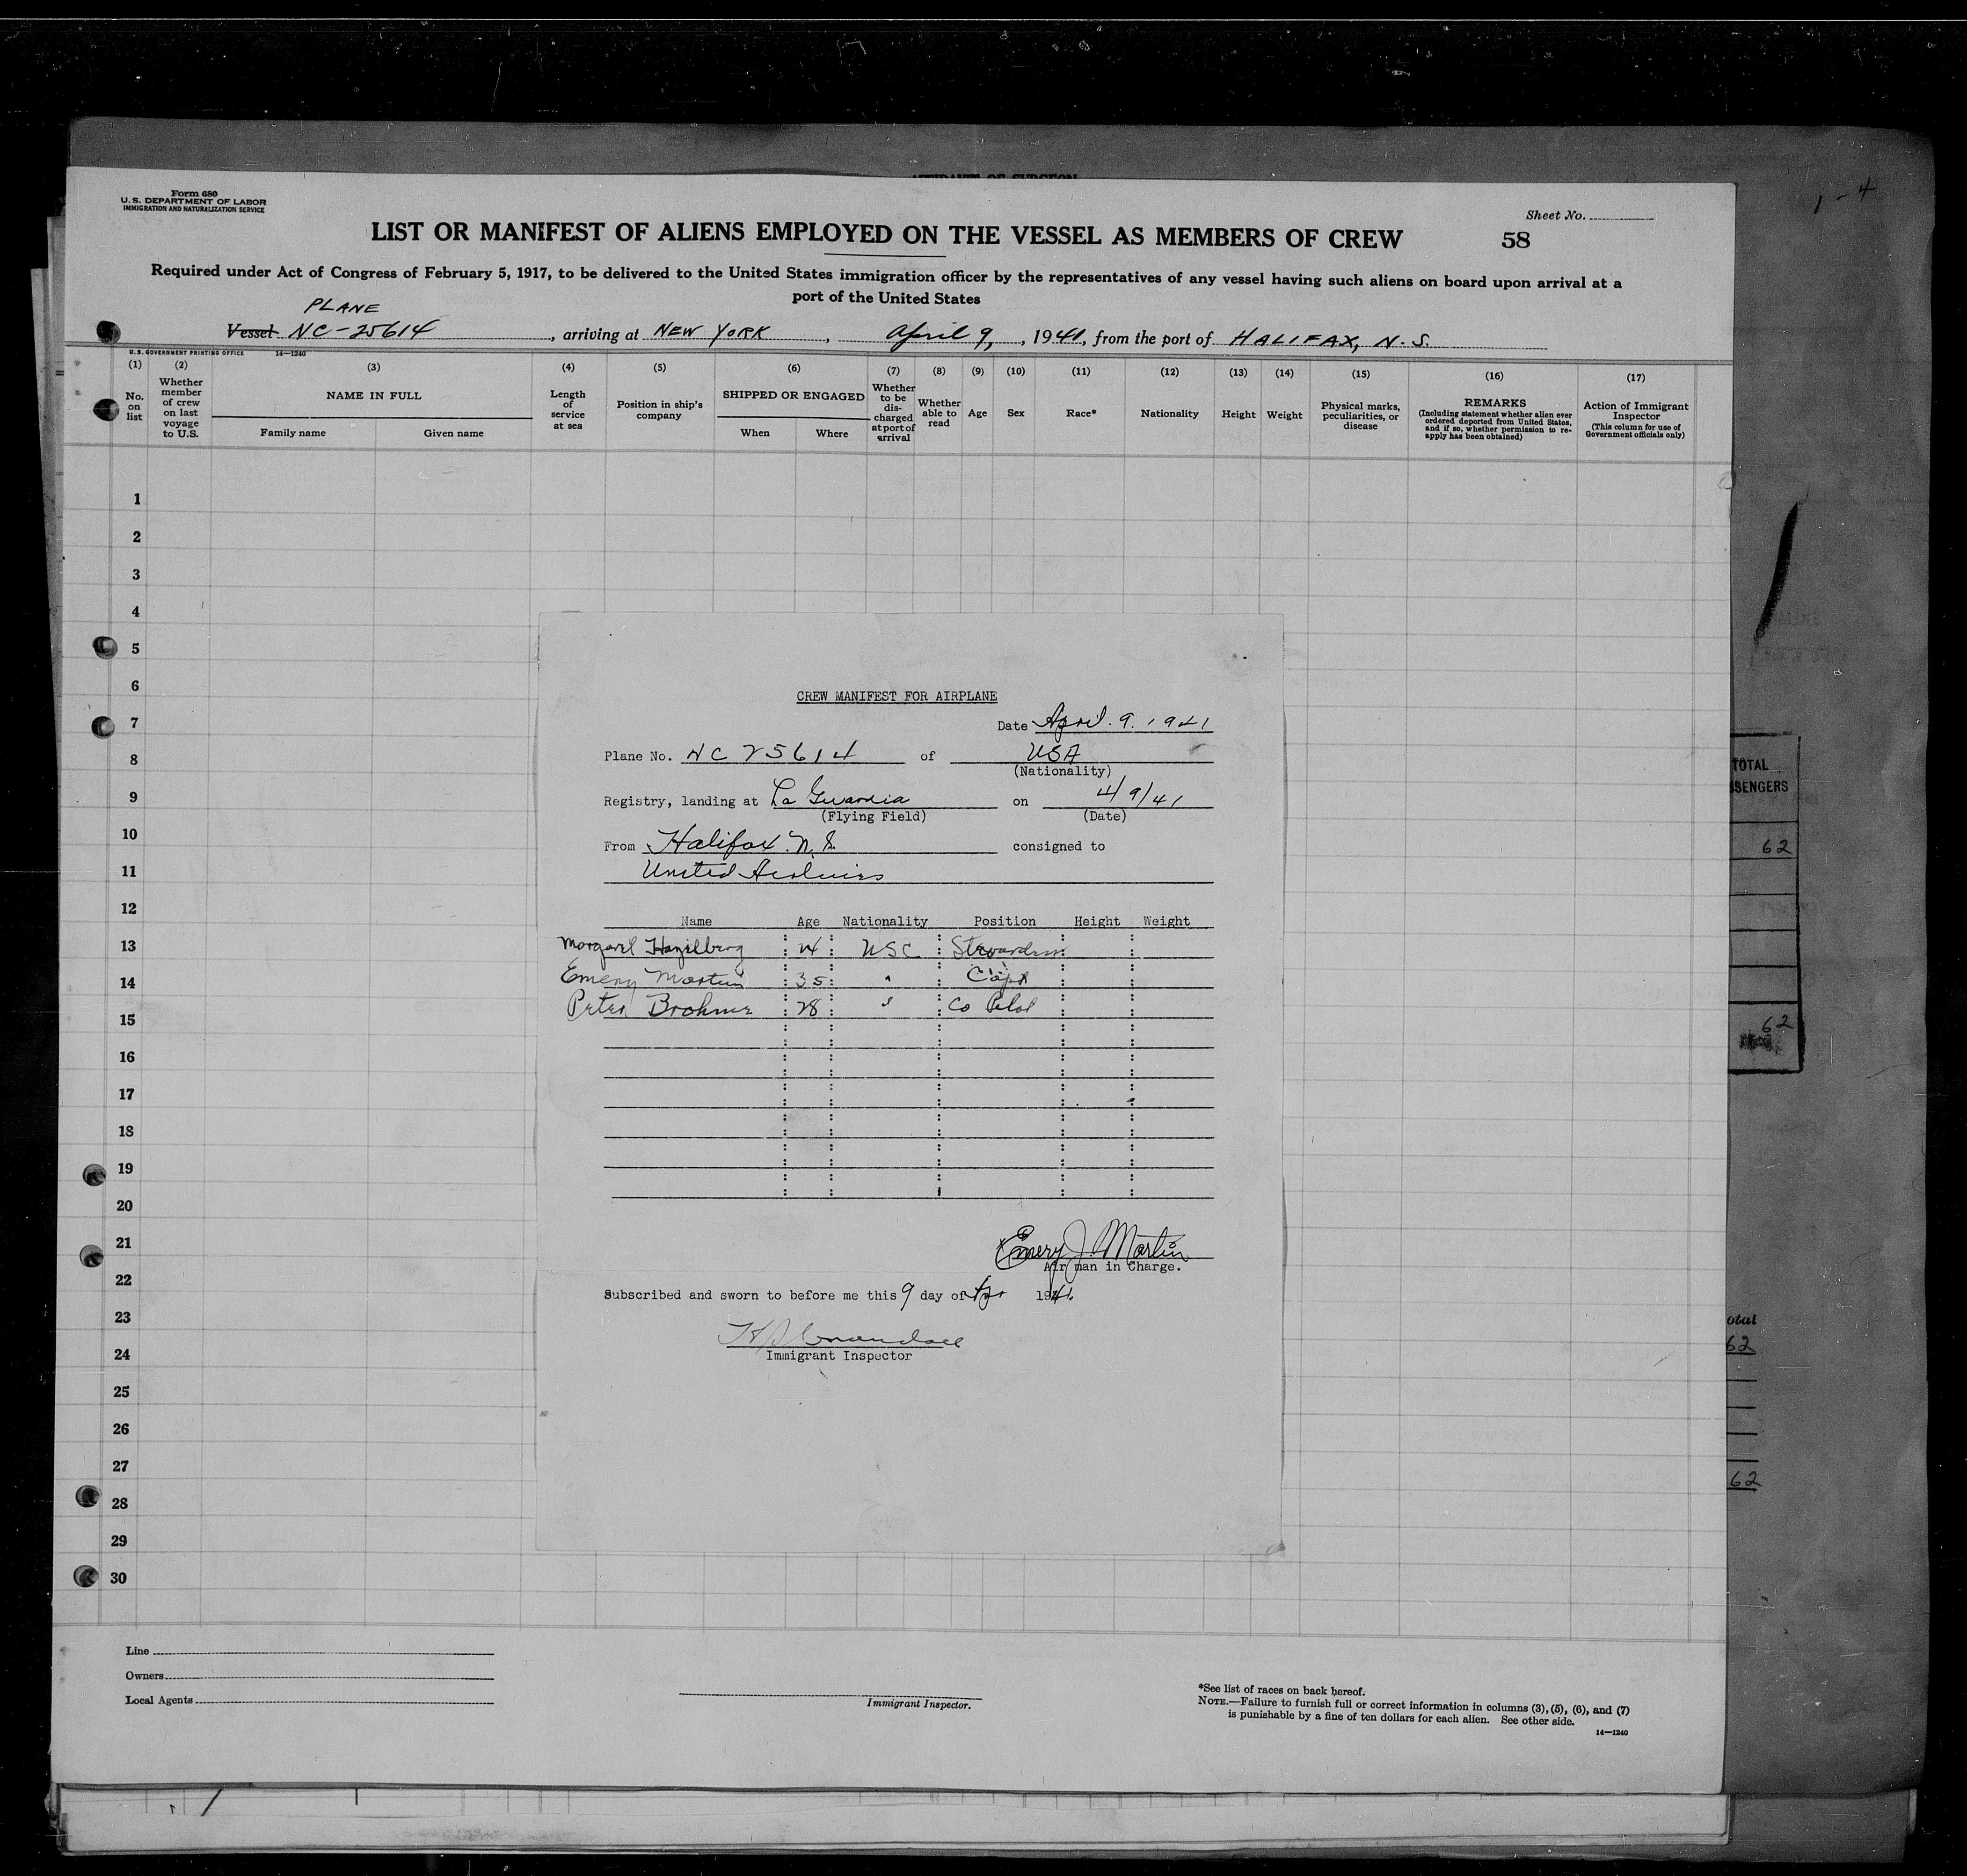 Form 680
U.S. DEPARTMENT OF LABOR
IMMIGRATION AND NATURALIZATION SERVICE
Sheet No.
LIST OR MANIFEST OF ALIENS EMPLOYED ON THE VESSEL AS MEMBERS OF CREW
58
Required under Act of Congress of February 5, 1917, to be delivered to the United States immigration officer by the representatives of any vessel having such aliens on board upon arrival at a
port of the United States
PLANE
Vessel NC-25614, arriving at NEW YORK, April 9, 1941, from the port of HALIFAX, N.S.
U.S. GOVERNMENT PRINTING OFFICE 14—1240
(1) No. on list
(2) Whether member of crew on last voyage to U.S.
(3) NAME IN FULL
Family name
Given name
(4) Length of service at sea
(5) Position in ship's company
(6) SHIPPED OR ENGAGED
When
Where
(7) Whether to be discharged at port of arrival
(8) Whether able to read
(9) Age
(10) Sex
(11) Race*
(12) Nationality
(13) Height
(14) Weight
(15) Physical marks, peculiarities, or disease
(16) REMARKS
(Including statement whether alien ever ordered deported from United States, and if so, whether permission to re-apply has been obtained)
(17) Action of Immigrant Inspector
(This column for use of Government officials only)
1
2
3
4
5
6
7
8
9
10
11
12
13
14
15
16
17
18
19
20
21
22
23
24
25
26
27
28
29
30
CREW MANIFEST FOR AIRPLANE
Date April. 9. 1941
Plane No. NC 25614 of USA
(Nationality)
Registry, landing at La Guardia on 4/9/41
(Flying Field) (Date)
From Halifax. N.S. consigned to
United Airlines
Name Age Nationality Position Height Weight
Margaret Hazelberg 24 USC Stewardess
Emery Martin 35 " Capt
Peter Brohmer 28 " Co Pilot
Emery J. Martin
Air man in Charge.
Subscribed and sworn to before me this 9 day of Apr 1941.
Immigrant Inspector
Line
Owners
Local Agents
Immigrant Inspector.
*See list of races on back hereof.
NOTE.—Failure to furnish full or correct information in columns (3), (5), (6), and (7)
is punishable by a fine of ten dollars for each alien. See other side.
14—1240
1-4
TOTAL
62
62
62
62